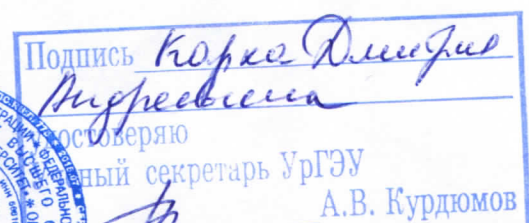 Подпись Карха Дмитрия
Андреевича
удостоверяю
ный секретарь УрГЭУ
А.В. Курдюмов